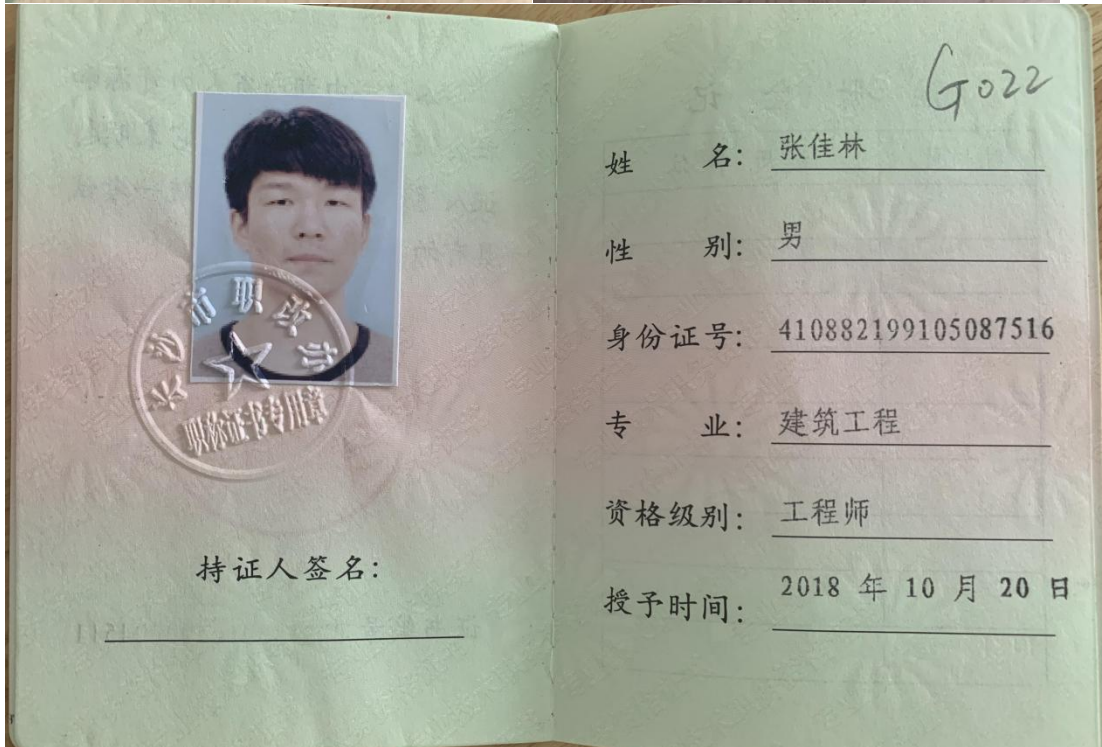 长沙市职改办
职称证书专用章
持证人签名:
G022
姓 名: 张佳林
性 别: 男
身份证号: 410882199105087516
专 业: 建筑工程
资格级别: 工程师
授予时间: 2018 年 10 月 20 日